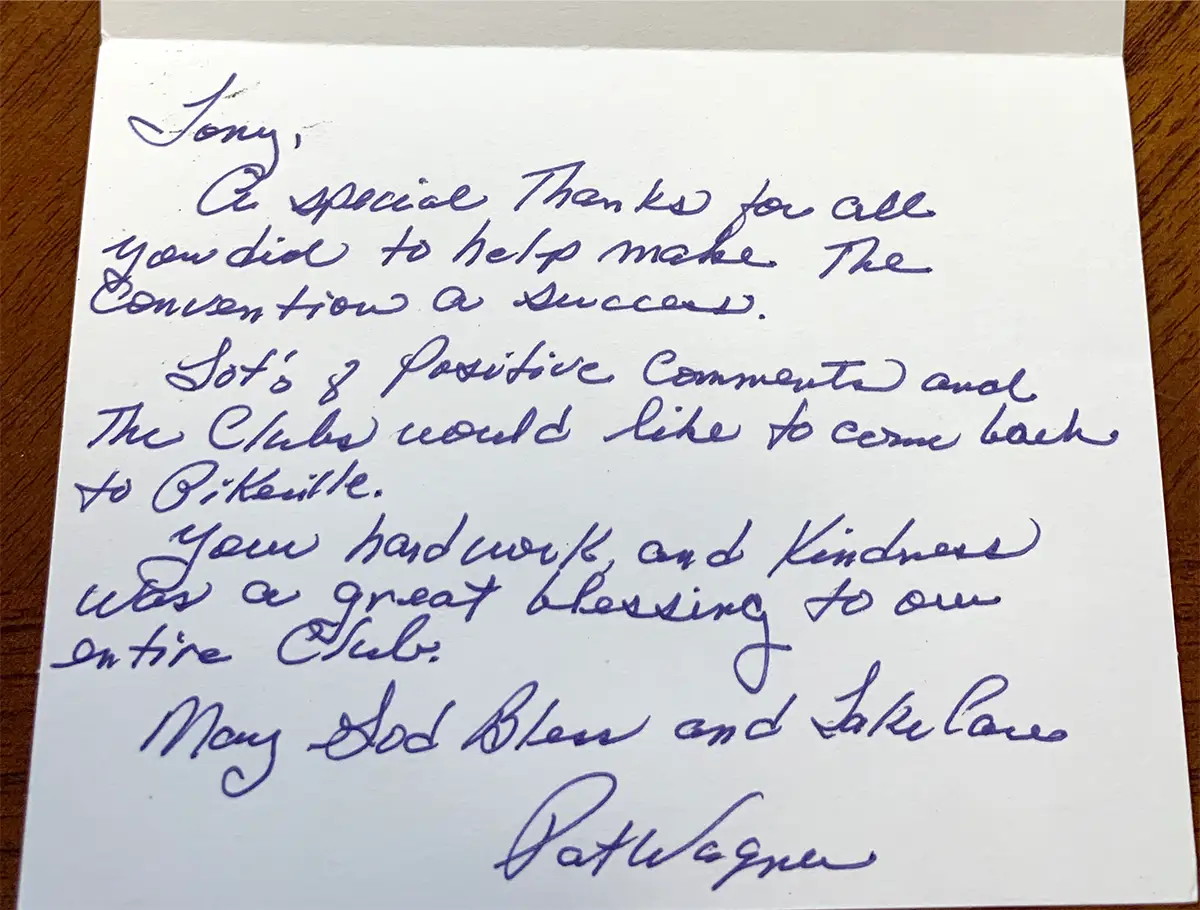 Tony,
A special Thanks for all
you did to help make The
Convention a success.
Lot's of Positive Comments and
The Clubs would like to come back
to Pikeville.
Your hard work, and Kindness
was a great blessing to our
entire Club.
May God Bless and Take Care
Pat Wagner